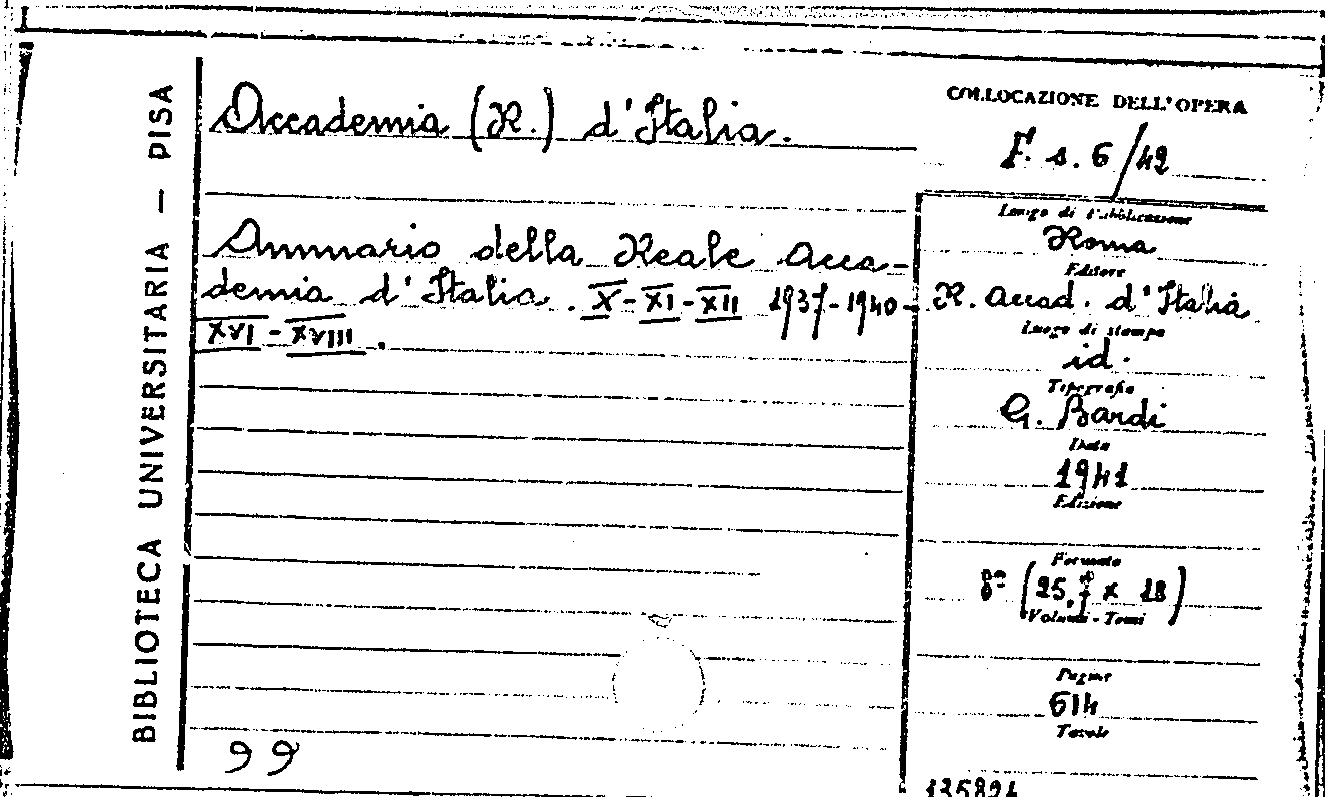 BIBLIOTECA UNIVERSITARIA — PISA
Accademia (R.) d'Italia.
Annuario della Reale Acca-
demia d'Italia. X-XI-XII 1937-1940-
XVI-XVIII.
99
COLLOCAZIONE DELL'OPERA
F. s. 6/42
Luogo di Pubblicazione
Roma
Editore
R. Accad. d'Italia
Luogo di stampa
id.
Tipografia
G. Bardi
Data
1941
Edizione
Formato
8° (25,7 x 18)
Volumi - Tomi
Pagine
614
Tavole